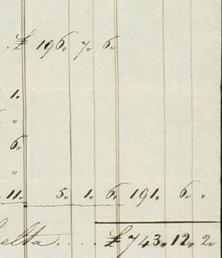 £ 196. 7. 6.
1.
"
6.
"
11. 5. 1. 6. 191. 6. "
elta.... £ 743. 12. 2.